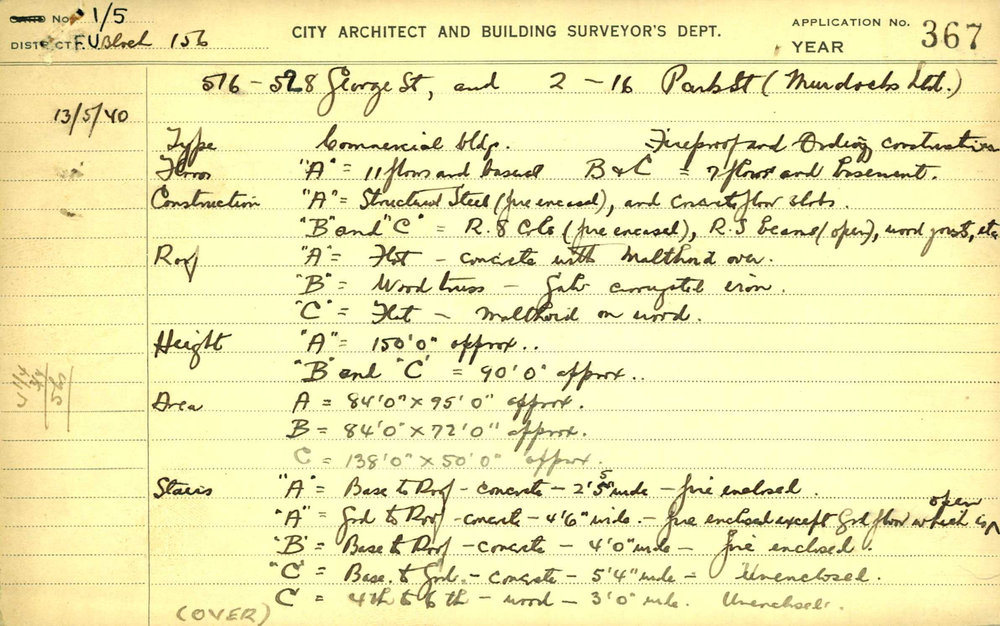 CARD No. 1/5
CITY ARCHITECT AND BUILDING SURVEYOR'S DEPT.
APPLICATION No. 367
DISTRICT F.U Block 156
YEAR
516-528 George St, and 2-16 Park St (Murdochs Ltd.)
13/5/40
Type Commercial bldg. Fireproof and Ordinary construction
Floors "A" = 11 floors and basement B & C = 7 floors and basement.
Construction "A" = Structural Steel (fire encased), and concrete floor slabs.
"B" and "C" = R.S Cols (fire encased), R.S beams (open), wood joists, etc
Roof "A" = Flat - concrete with Malthoid over.
"B" = Wood truss - Galv corrugated iron.
"C" = Flat - malthoid on wood.
Height "A" = 150'0" approx..
"B" and "C" = 90'0" approx..
Area A = 84'0" x 95'0" approx.
B = 84'0" x 72'0" approx.
C = 138'0" x 50'0" approx.
Stairs "A" = Base to Roof - concrete - 2'5" wide - fire enclosed.
"A" = Grd to Roof - concrete - 4'6" wide. - fire enclosed except Grd floor which is open
"B" = Base to Roof - concrete - 4'0" wide - fire enclosed.
"C" = Base. to Grd. - concrete - 5'4" wide - Unenclosed.
C = 4th to 6th - wood - 3'0" wide. Unenclosed.
(OVER)